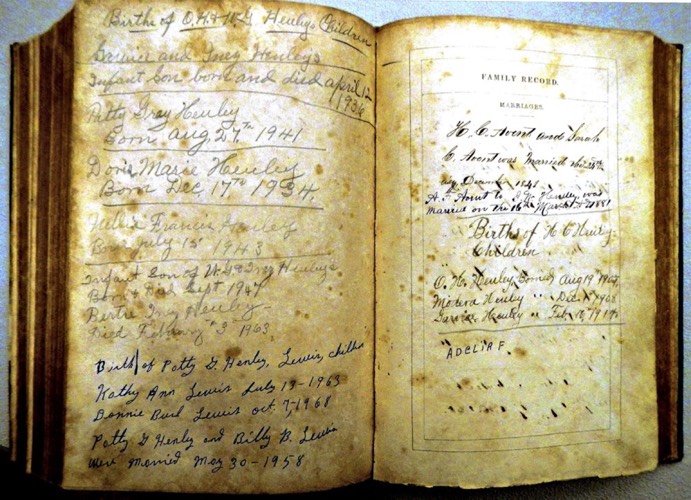 Births of O.H. & W.G Henleys Children
and Inez Henleys
Infant Son born and died april 12
1936
Patty Gray Henley
Born aug 27th 1941
Doris Marie Henley
Born Dec 17th 1934.
Francis Henley
Born July 15
Infant Son of W.G & Inez Henleys
Born & Died Sept 1947
Bertie Inez Henley
Died February 3 1963
Birth of Patty G. Henley, Lewis, children
Kathy Ann Lewis July 19-1963
Bonnie Burl Lewis oct. 7, 1968
Patty G Henley and Billy B. Lewis
were Married May 30-1958
FAMILY RECORD.
MARRIAGES.
H. C. Avent and Sarah
C. Avent was Married
day December 1841
Henley was
Married on the 16th March 1881
Births of H C Henley
Children
O. H. Henley, Borned Aug 19
Henley " Dec
Henley " Feb. 10,
ADELIA F.